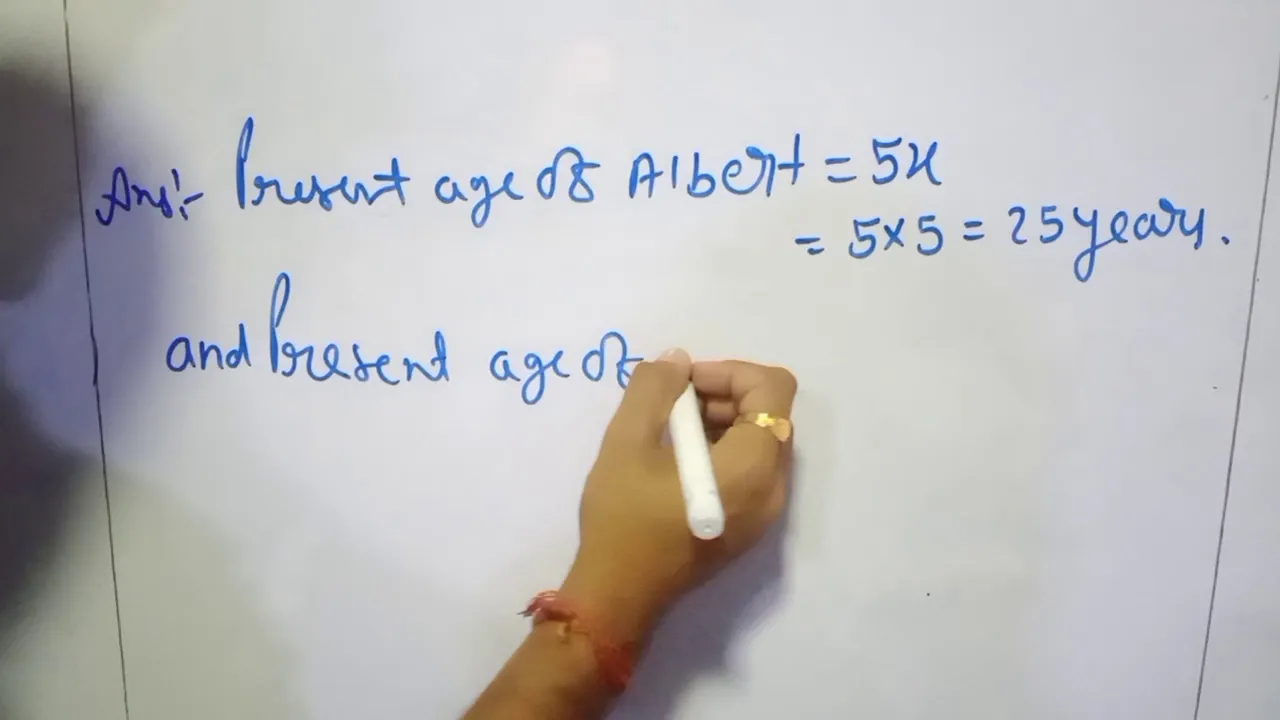 Ans:- Present age of Albert = 5x
= 5×5 = 25 years.
and Present age of